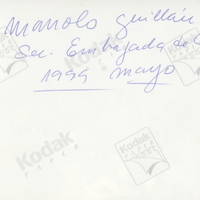 Manolo Guillán
Sec. Embajada de C
1999 mayo
Kodak
PAPER
Kodak
PAPER
Kodak